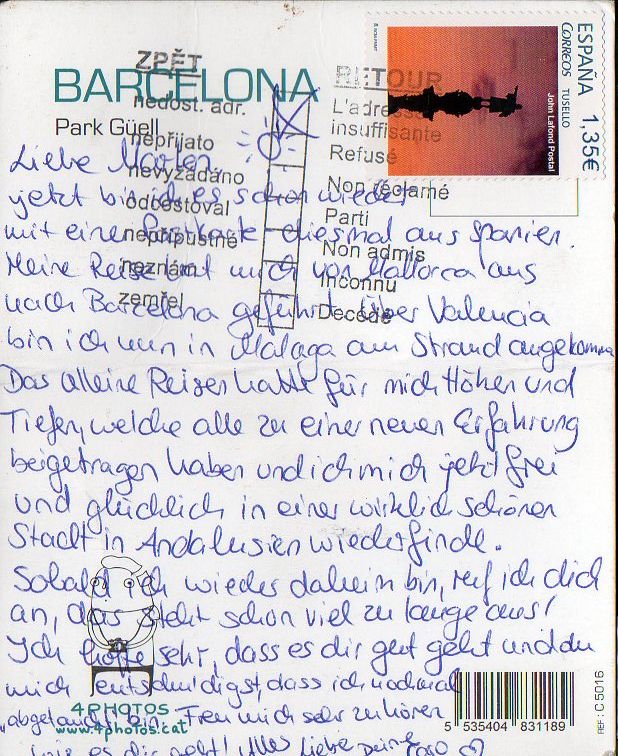 BARCELONA
Park Güell
ESPAÑA 1,35€
CORREOS TUSELLO
John Lafond Postal
ZPĚT
nedost. adr.
nepřijato
nevyžádáno
odcestoval
nepřípustné
neznám
zemřel
RETOUR
L'adresse
insuffisante
Refusé
Non réclamé
Parti
Non admis
Inconnu
Décédé
Liebe
jetzt bin ich es schon wieder
mit einer Postkarte diesmal aus Spanien.
Meine Reise hat mich von Mallorca aus
nach Barcelona geführt. Über Valencia
bin ich nun in Malaga am Strand angekommen
Das alleine Reisen hatte für mich Höhen und
Tiefen, welche alle zu einer neuen Erfahrung
beigetragen haben und ich mich jetzt frei
und glücklich in einer wirklich schönen
Stadt in Andalusien wiederfinde.
Sobald ich wieder daheim bin, ruf ich dich
an, das steht schon viel zu lange aus!
Ich hoffe sehr, dass es dir gut geht und du
mich entschuldigst, dass ich nochmal
"abgetaucht" bin. Freu mich sehr zu hören
wie es dir geht! Alles Liebe deine
4PHOTOS
www.4photos.cat
5 535404 831189
REF: C 5016